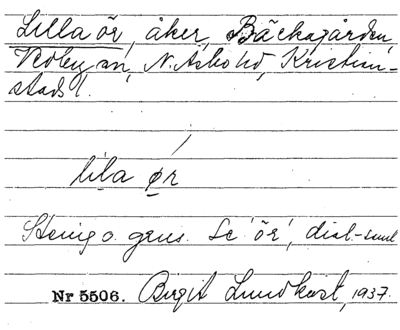 Lilla ör, åker, Bäckagården,
Vedby sn, N. Åsbo hd, Kristian-
stads l.
lila ør
Stenig o. grus. Se 'ör', dial-saml
Nr 5506. Birgit Lundkvist, 1937.